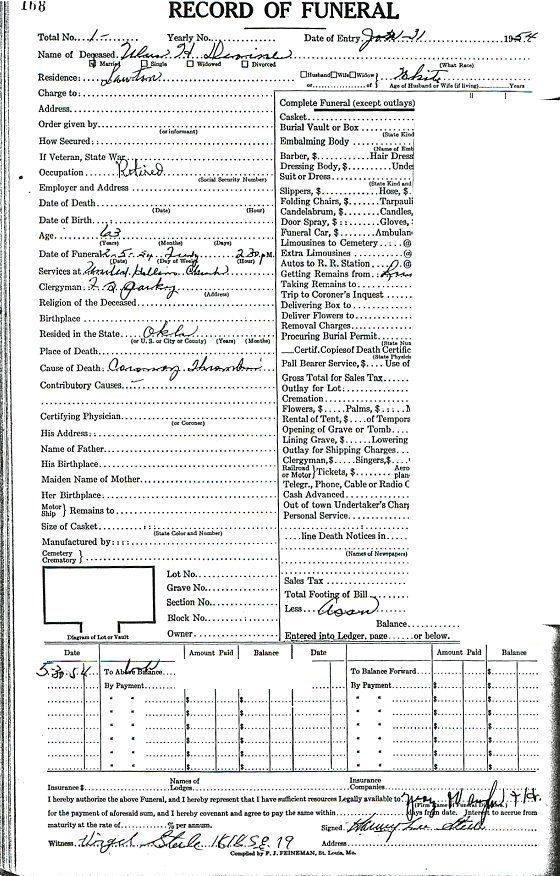 168
RECORD OF FUNERAL
Total No. 1- Yearly No. Date of Entry 31 1954
Name of Deceased H.
Married Single Widowed Divorced
(What Race)
Residence: Lawton Husband Wife Widow } White
or of } Age of Husband or Wife (if living) Years
Charge to:
Address
Order given by
(or informant)
How Secured:
If Veteran, State War
Occupation Retired
(Social Security Number)
Employer and Address
Date of Death
(Date) (Hour)
Date of Birth
Age 63
(Years) (Months) (Days)
Date of Funeral 2-5-54 2:30 P.M.
(Date) (Day of Week) (Hour)
Services at
Clergyman:
(Address)
Religion of the Deceased
Birthplace
Resided in the State Okla
(or U. S. or City or County) (Years) (Months)
Place of Death
Cause of Death:
Contributory Causes -
Certifying Physician
(or Coroner)
His Address:
Name of Father
His Birthplace
Maiden Name of Mother
Her Birthplace
Motor
Ship } Remains to
Size of Casket
(State Color and Number)
Manufactured by:
Cemetery
Crematory }
Lot No.
Grave No.
Section No.
Block No.
Owner
Diagram of Lot or Vault
Complete Funeral (except outlays)
Casket
Burial Vault or Box
(State Kind
Embalming Body
(Name of Emb
Barber, $ Hair Dress
Dressing Body, $ Unde
Suit or Dress
(State Kind and
Slippers, $ Hose, $
Folding Chairs, $ Tarpauli
Candelabrum, $ Candles,
Door Spray, $ Gloves,
Funeral Car, $ Ambulan
Limousines to Cemetery @
Extra Limousines @
Autos to R. R. Station @
Getting Remains from
Taking Remains to
Trip to Coroner's Inquest
Delivering Box to
Deliver Flowers to
Removal Charges
Procuring Burial Permit
(State Num
Certif. Copies of Death Certific
(State Physici
Pall Bearer Service, $ Use of
Gross Total for Sales Tax
Outlay for Lot:
Cremation
Flowers, $ Palms, $
Rental of Tent, $ of Tempora
Opening of Grave or Tomb
Lining Grave, $ Lowering
Outlay for Shipping Charges
Clergyman, $ Singers, $
Railroad
or Motor } Tickets, $ Aero
plan
Telegr., Phone, Cable or Radio C
Cash Advanced
Out of town Undertaker's Charg
Personal Service
line Death Notices in
(Names of Newspapers)
Sales Tax
Total Footing of Bill
Less
Balance
Entered into Ledger, page or below.
Date Amount Paid Balance Date Amount Paid Balance
To Above Balance To Balance Forward $
By Payment $ By Payment $
" " $ " " $
" " $ " " $
" " $ " " $
" " $ " " $
" " $ " " $
Insurance $ Names of Lodges Insurance Companies
I hereby authorize the above Funeral, and I hereby represent that I have sufficient resources Legally available to
for the payment of aforesaid sum, and I hereby covenant and agree to pay the same within days from date. Interest to accrue from
maturity at the rate of % per annum. Signed
Witness Virgil Steele Address
Compiled by F. J. FEINEMAN, St. Louis, Mo.